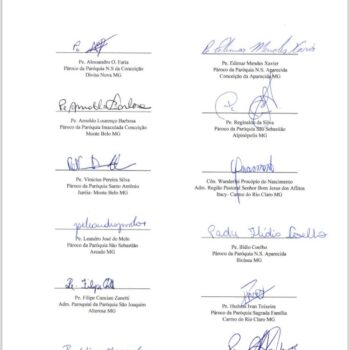 Pe. Alessandro O. Faria
Pároco da Paróquia N.S da Conceição
Divisa Nova MG
Pe. Edimar Mendes Xavier
Pe. Edimar Mendes Xavier
Pároco da Paróquia N.S. Aparecida
Conceição da Aparecida MG
Pe. Arnoldo Barbosa
Pe. Arnoldo Lourenço Barbosa
Pároco da Paróquia Imaculada Conceição
Monte Belo MG
Pe. Reginaldo da Silva
Pároco da Paróquia São Sebastião
Alpinópolis MG
Pe. Vinicius Pereira Silva
Pároco da Paróquia Santo Antônio
Juréia- Monte Belo MG
Côn. Wanderlei Princípio do Nascimento
Adm. Região Pastoral Senhor Bom Jesus dos Aflitos
Itacy- Carmo do Rio Claro MG
Pe. Leandro José de Melo
Pároco da Paróquia São Sebastião
Areado MG
Padre Ilídio Coelho
Pe. Ilídio Coelho
Pároco da Paróquia N.S. Aparecida
Ilicínea MG
Pe. Filipe
Pe. Filipe Cancian Zanetti
Adm. Paroquial da Paróquia São Joaquim
Alterosa MG
Ivan Teixeira
Pároco da Paróquia Sagrada Família
Carmo do Rio Claro MG